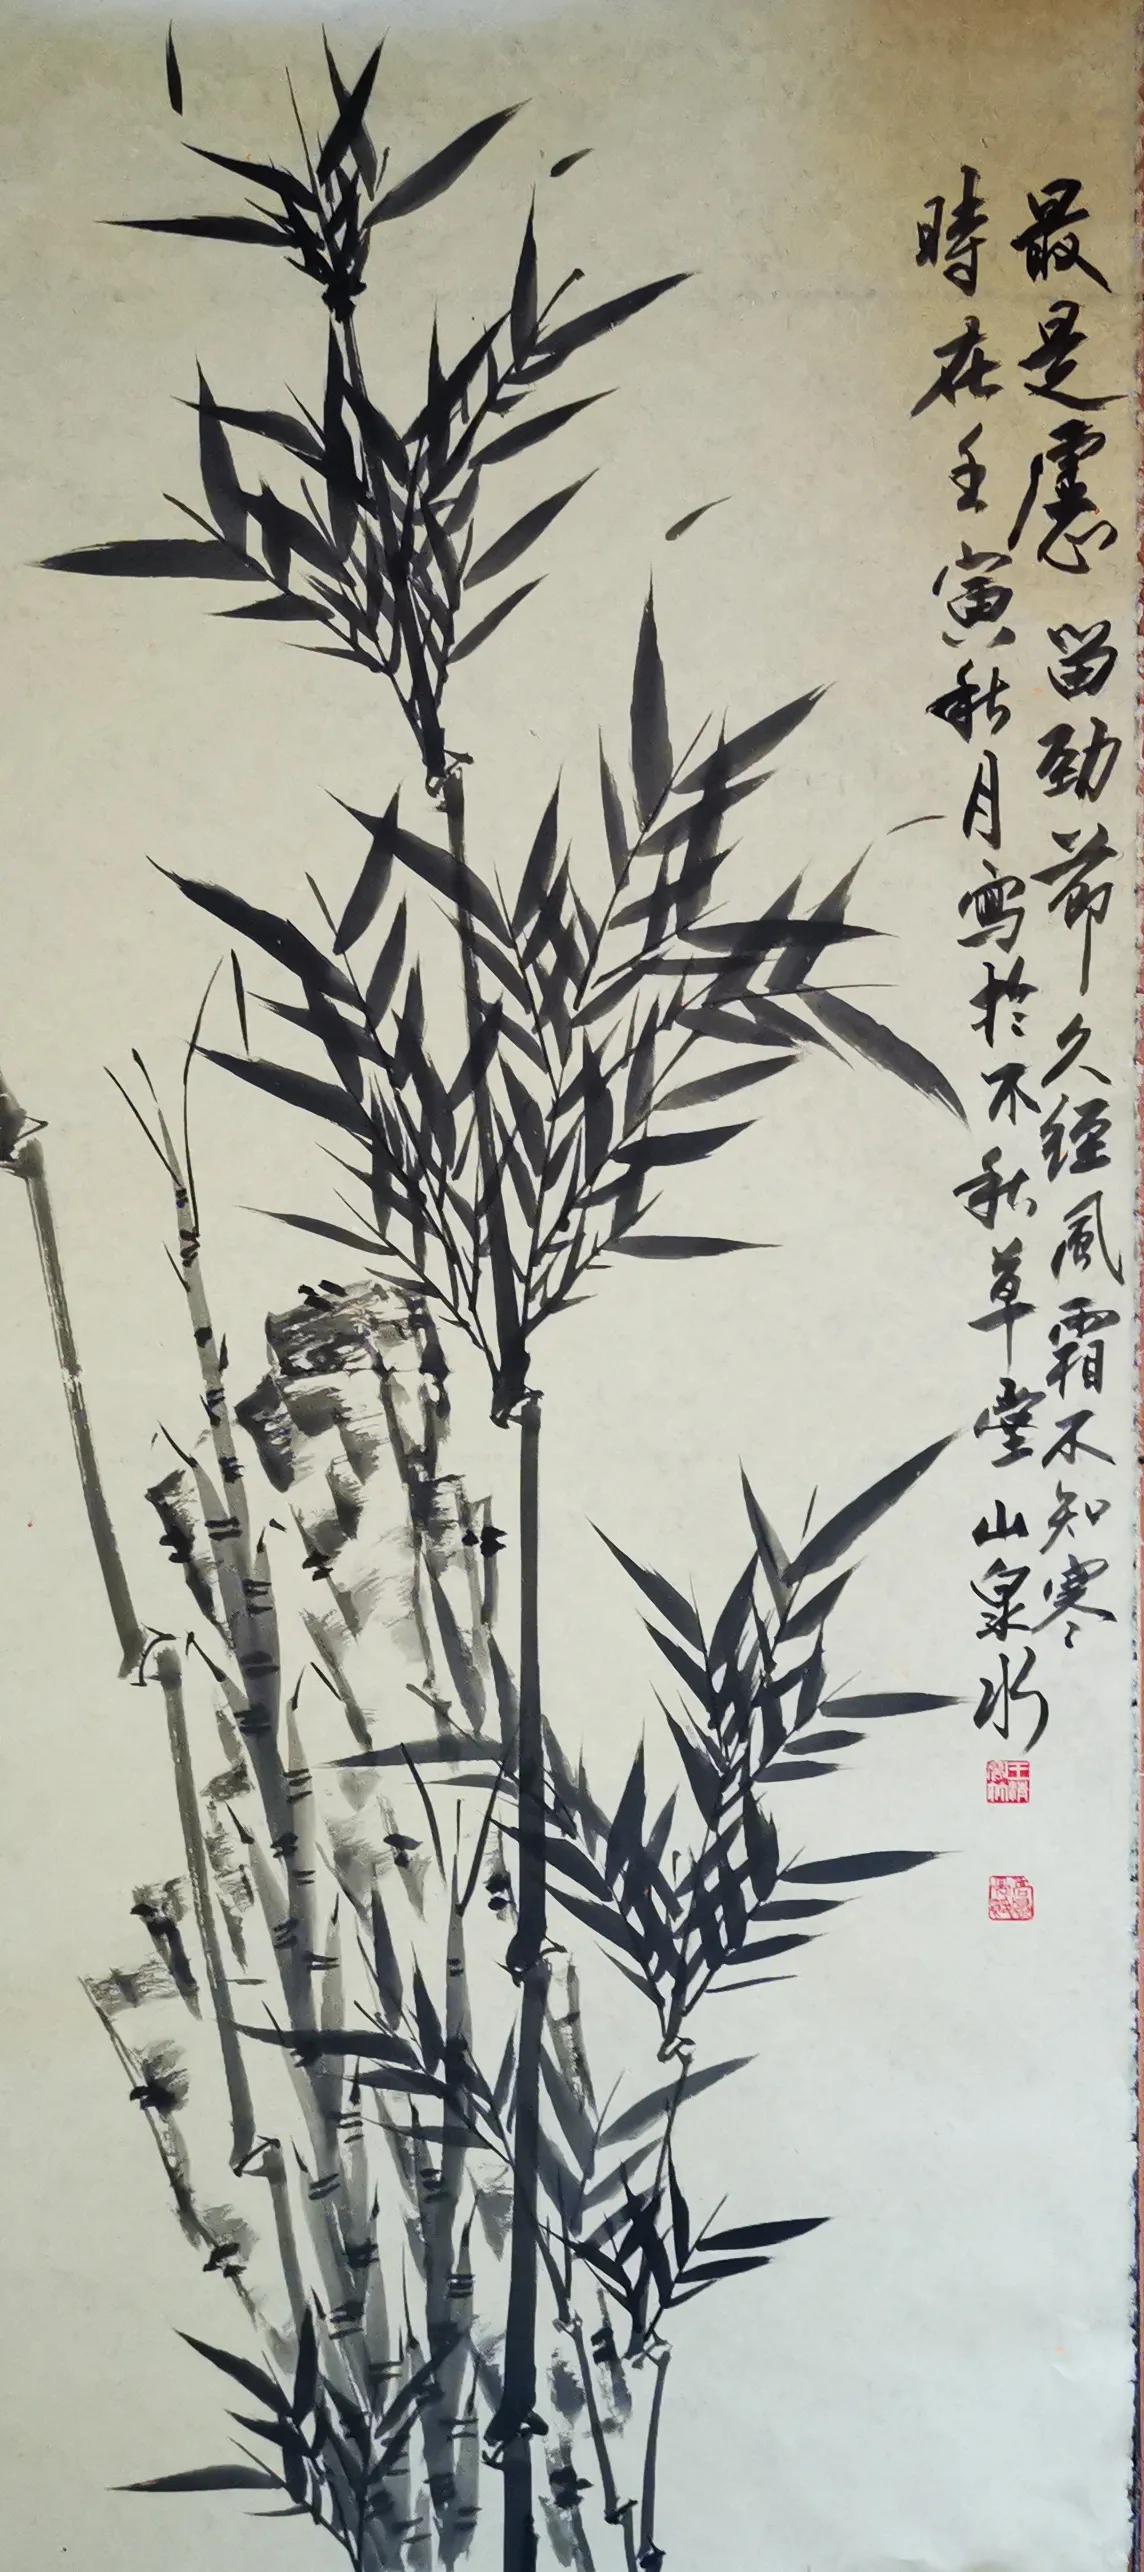 最是虚心留劲節久經風霜不知寒
時在壬寅秋月寫於不秋草堂 山泉水